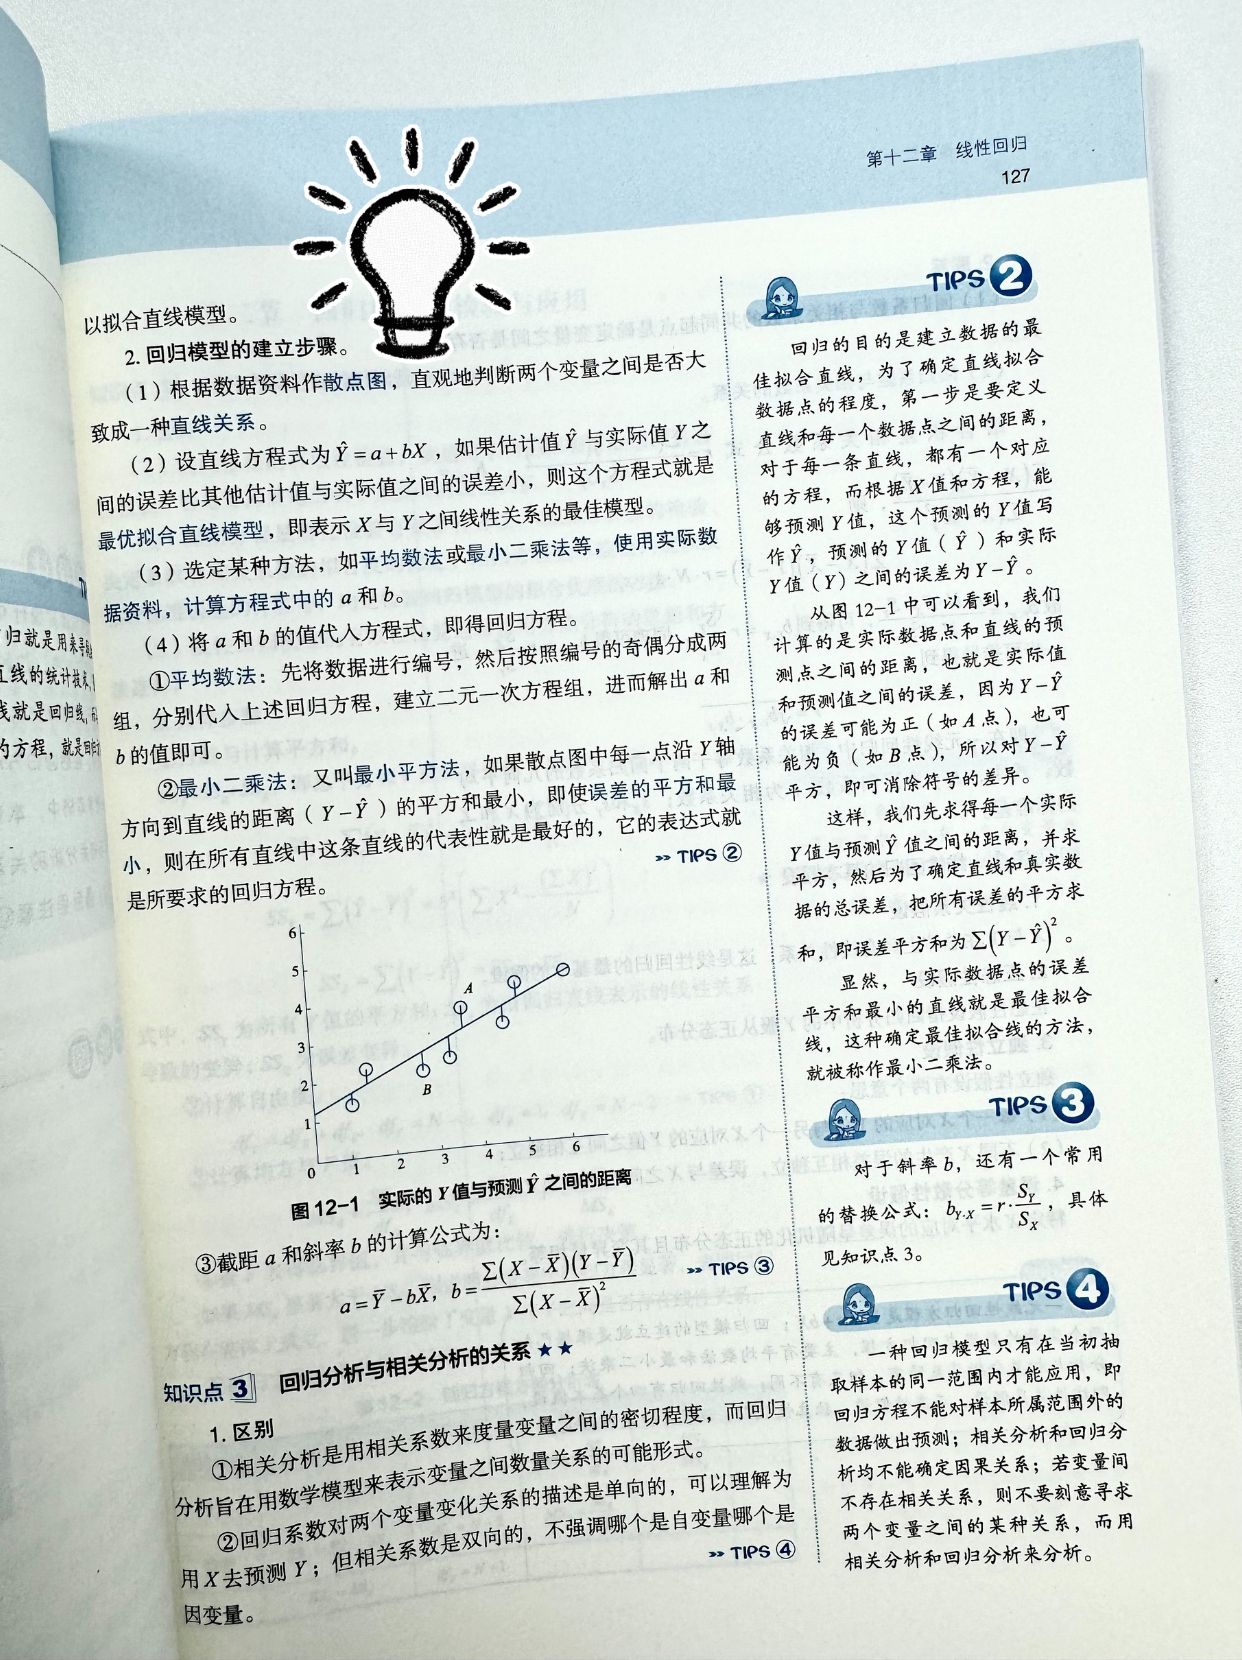 第十二章 线性回归
127
以拟合直线模型。
2. 回归模型的建立步骤。
（1）根据数据资料作散点图，直观地判断两个变量之间是否大
致成一种直线关系。
（2）设直线方程式为Ŷ=a+bX，如果估计值Ŷ与实际值Y之
间的误差比其他估计值与实际值之间的误差小，则这个方程式就是
最优拟合直线模型，即表示X与Y之间线性关系的最佳模型。
（3）选定某种方法，如平均数法或最小二乘法等，使用实际数
据资料，计算方程式中的a和b。
（4）将a和b的值代人方程式，即得回归方程。
①平均数法：先将数据进行编号，然后按照编号的奇偶分成两
组，分别代人上述回归方程，建立二元一次方程组，进而解出a和
b的值即可。
②最小二乘法：又叫最小平方法，如果散点图中每一点沿Y轴
方向到直线的距离（Y-Ŷ）的平方和最小，即使误差的平方和最
小，则在所有直线中这条直线的代表性就是最好的，它的表达式就
是所要求的回归方程。
»» TIPS ②
6
5
4
3
2
1
0
1
2
3
4
5
6
A
B
图12-1 实际的Y值与预测Ŷ之间的距离
③截距a和斜率b的计算公式为：
a=Y̅-bX̅，b=∑(X-X̅)(Y-Y̅)/∑(X-X̅)²
»» TIPS ③
知识点 3 回归分析与相关分析的关系★★
1. 区别
①相关分析是用相关系数来度量变量之间的密切程度，而回归
分析旨在用数学模型来表示变量之间数量关系的可能形式。
②回归系数对两个变量变化关系的描述是单向的，可以理解为
用X去预测Y；但相关系数是双向的，不强调哪个是自变量哪个是
因变量。
»» TIPS ④
TIPS 2
回归的目的是建立数据的最
佳拟合直线，为了确定直线拟合
数据点的程度，第一步是要定义
直线和每一个数据点之间的距离，
对于每一条直线，都有一个对应
的方程，而根据X值和方程，能
够预测Y值，这个预测的Y值写
作Ŷ，预测的Y值（Ŷ）和实际
Y值（Y）之间的误差为Y-Ŷ。
从图12-1中可以看到，我们
计算的是实际数据点和直线的预
测点之间的距离，也就是实际值
和预测值之间的误差，因为Y-Ŷ
的误差可能为正（如A点），也可
能为负（如B点），所以对Y-Ŷ
平方，即可消除符号的差异。
这样，我们先求得每一个实际
Y值与预测Ŷ值之间的距离，并求
平方，然后为了确定直线和真实数
据的总误差，把所有误差的平方求
和，即误差平方和为∑(Y-Ŷ)²。
显然，与实际数据点的误差
平方和最小的直线就是最佳拟合
线，这种确定最佳拟合线的方法，
就被称作最小二乘法。
TIPS 3
对于斜率b，还有一个常用
的替换公式：b_{Y·X}=r·S_Y/S_X，具体
见知识点3。
TIPS 4
一种回归模型只有在当初抽
取样本的同一范围内才能应用，即
回归方程不能对样本所属范围外的
数据做出预测；相关分析和回归分
析均不能确定因果关系；若变量间
不存在相关关系，则不要刻意寻求
两个变量之间的某种关系，而用
相关分析和回归分析来分析。